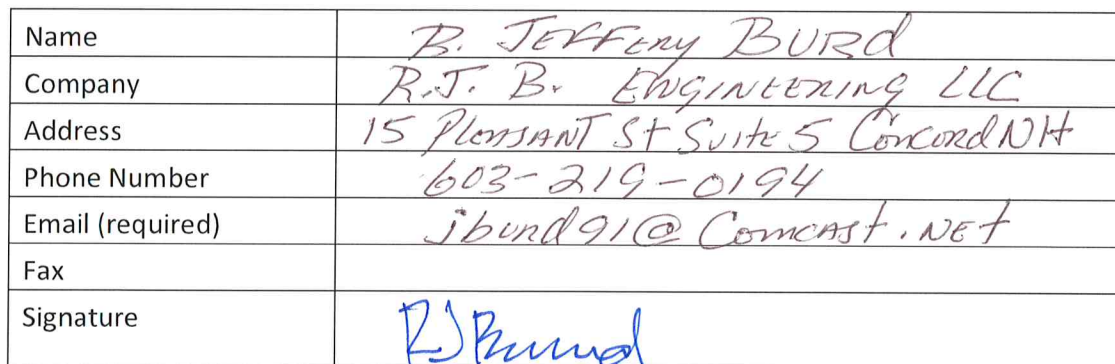 Name B. JEFFERY BURD
Company R.J. B. ENGINEERING LLC
Address 15 PLEASANT St Suite 5 Concord NH
Phone Number 603-219-0194
Email (required) jburd91@Comcast.NET
Fax
Signature RJ Burd